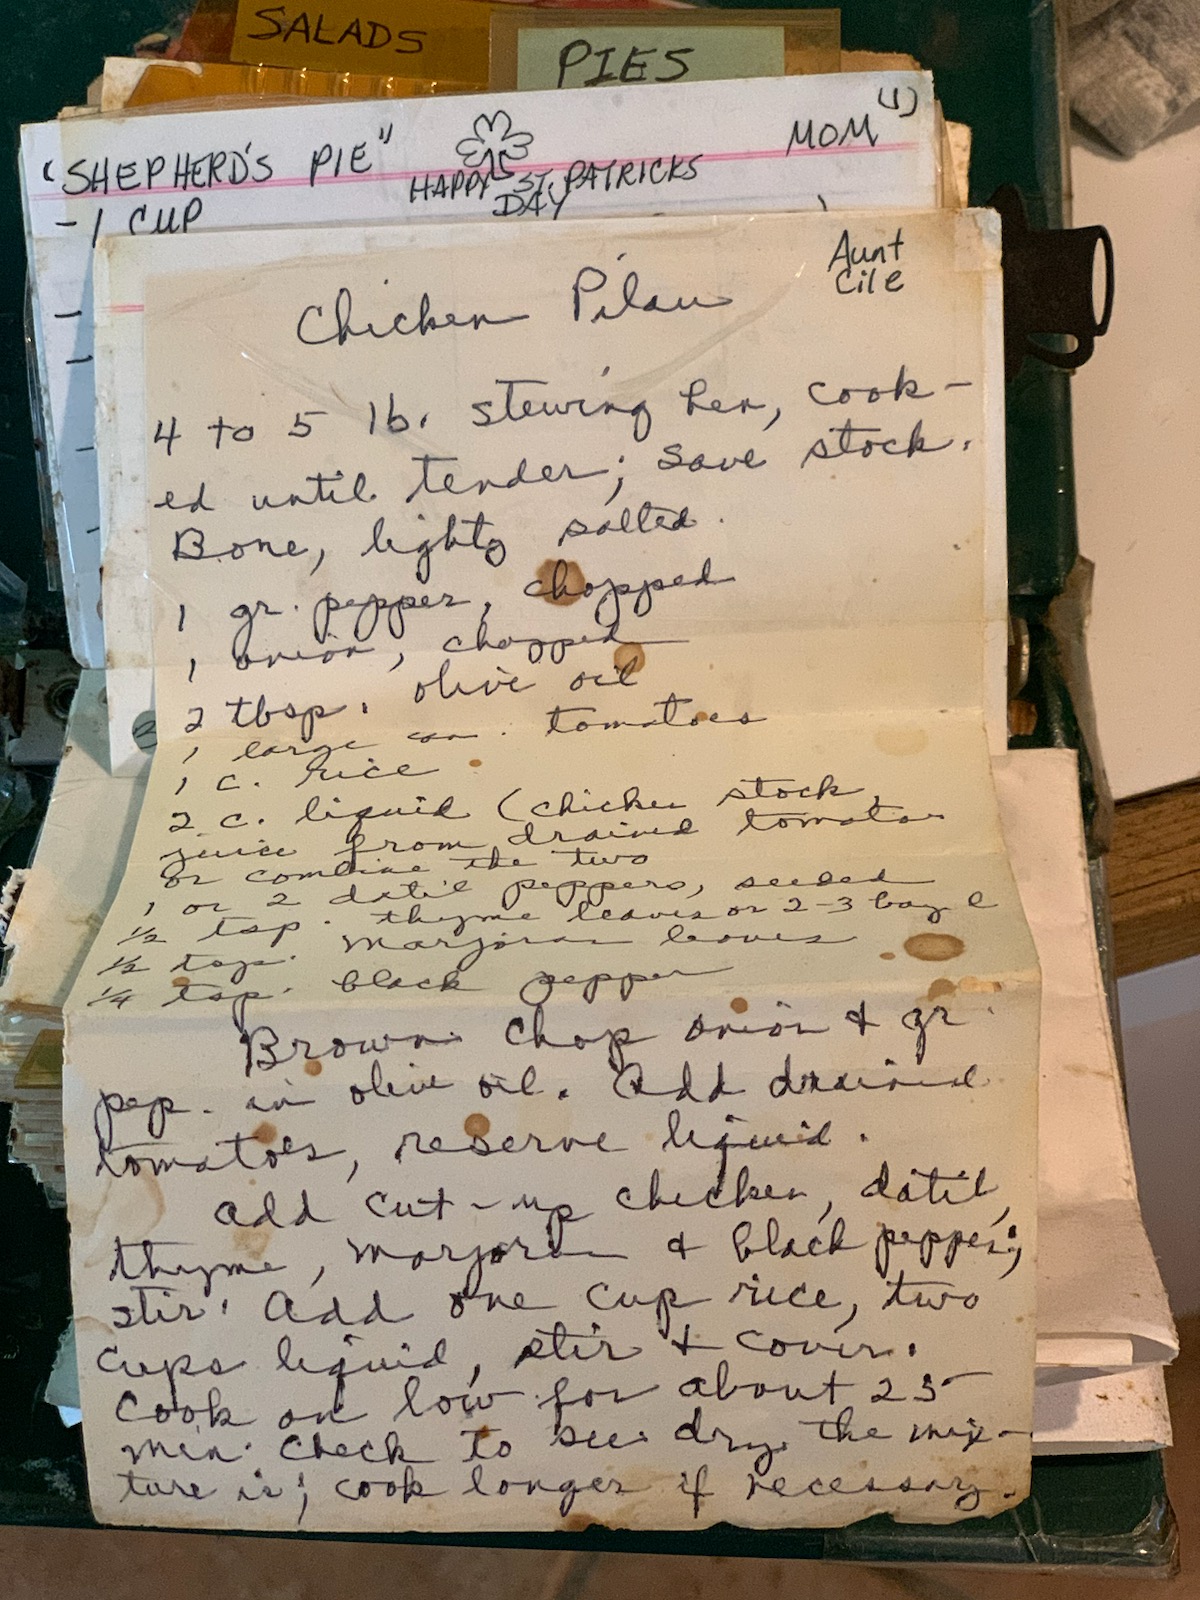 SALADS
PIES
(1)
"SHEPHERD'S PIE"
HAPPY ST. PATRICKS
DAY
MOM
- 1 CUP
Aunt
Cile
Chicken Pilau
4 to 5 lb. stewing hen, cook-
ed until tender; save stock.
Bone, lighty salted.
1 gr. pepper, chopped
1 onion, chopped
2 tbsp. olive oil
1 large can. tomatoes
1 c. rice
2 c. liquid (chicken stock,
juice from drained tomatoes
or combine the two
1 or 2 datil peppers, seeded
1/2 tsp. thyme leaves or 2-3 bay l
1/2 tsp. marjoram leaves
1/4 tsp. black pepper
Brown chop onion & gr.
pep. in olive oil. Add drained
tomatoes, reserve liquid.
Add cut-up chicken, datil,
thyme, marjoram & black pepper;
stir. Add one cup rice, two
cups liquid, stir & cover.
Cook on low for about 25
min. Check to see dry the mix-
ture is; cook longer if necessary.